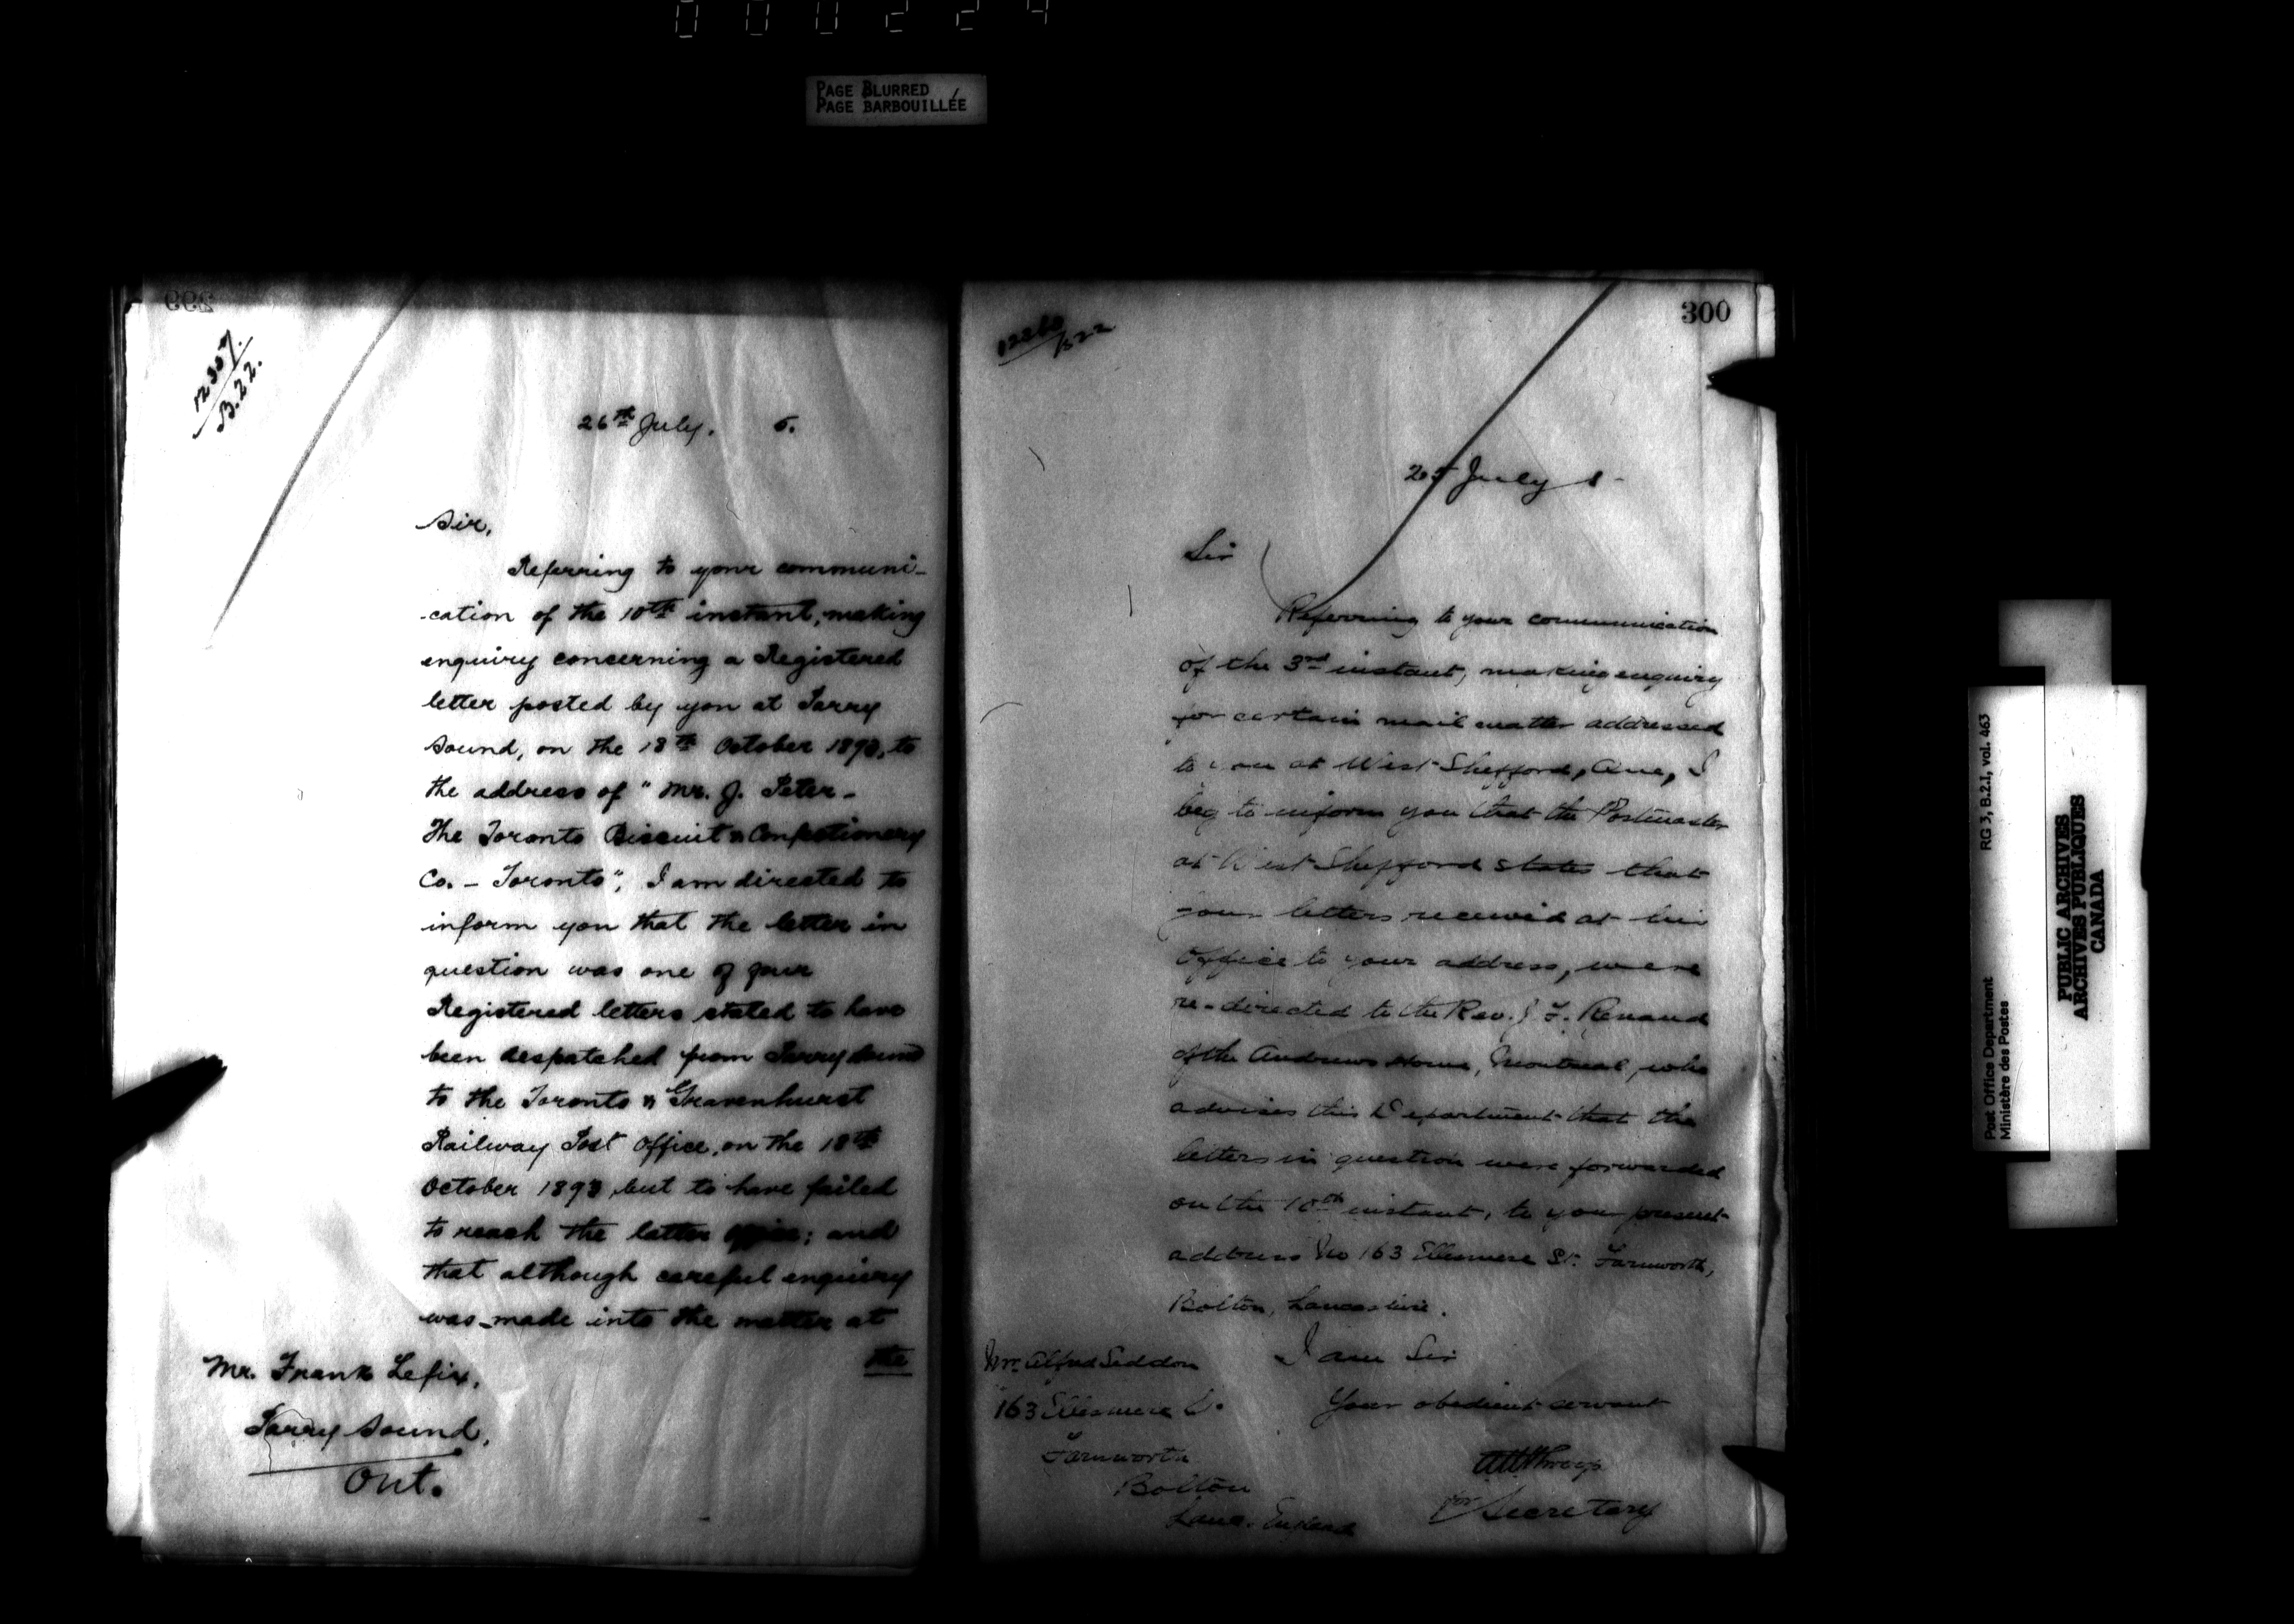 000224
PAGE BLURRED
PAGE BARBOUILLÉE
299
12307.
B.22.
26th July. 5.
Sir,
Referring to your communi-
-cation of the 10th instant, making
enquiry concerning a Registered
letter posted by you at Parry
Sound, on the 18th October 1893, to
the address of "Mr. J. Peter-
The Toronto Biscuit & Confectionery
Co. - Toronto", I am directed to
inform you that the letter in
question was one of four
Registered letters stated to have
been despatched from Parry Sound
to the Toronto & Gravenhurst
Railway Post Office, on the 18th
October 1893, but to have failed
to reach the latter office; and
that although careful enquiry
was made into the matter at
the
Mr. Frank Lefix,
Parry Sound,
Ont.
300
B22
25 July
Sir
Referring to your communication
of the 3rd instant, making enquiry
for certain mail matter addressed
to you at West Shefford, Que, I
beg to inform you that the Postmaster
at West Shefford states that
letters received at his
Office to your address, were
re-directed to the Rev. J. F. Renaud
of the Andrews Home, Montreal, who
advises this Department that the
letters in question were forwarded
on the 10th instant, to your present
address No 163 Ellesmere St. Farnworth,
Bolton, Lancashire.
I am Sir
Your obedient servant
for Secretary
Mr. Alfred Seddon
163 Ellesmere St.
Farnworth
Bolton
Lanc. England
Post Office Department
Ministère des Postes
RG 3, B.2.1, vol. 463
PUBLIC ARCHIVES
ARCHIVES PUBLIQUES
CANADA